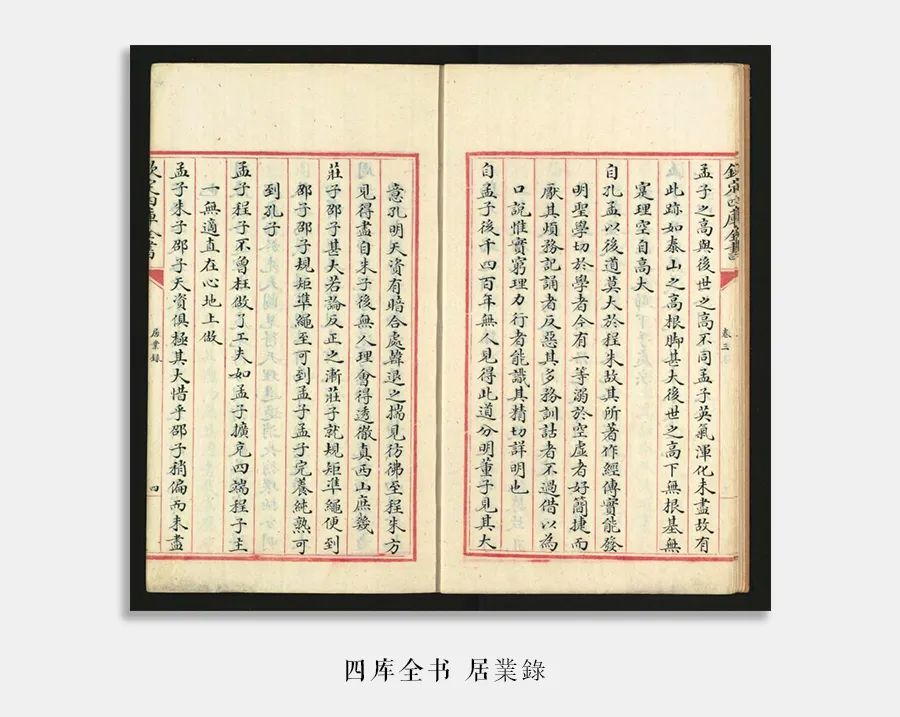 欽定四庫全書
卷三
孟子之高與後世之高不同孟子英氣渾化未盡故有
此跡如泰山之高根脚甚大後世之高下無根基無
寔理空自高大
自孔孟以後道莫大於程朱故其所著作經傳實能發
明聖學切於學者今有一等溺於空虛者好簡捷而
厭其煩務記誦者反惡其多務訓詁者不過借以為
口說惟實窮理力行者能識其精切詳明也
自孟子後千四百年無人見得此道分明董子見其大
意孔明天資有暗合處韓退之揣見彷彿至程朱方
見得盡自朱子後無人理會得透徹真西山庶幾
莊子邵子甚大若論反正之漸莊子就規矩準繩便到
邵子邵子規矩準繩至可到孟子孟子完養純熟可
到孔子
孟子程子不曾枉做了工夫如孟子擴充四端程子主
一無適直在心地上做
孟子朱子邵子天資俱極其大惜乎邵子稍偏而未盡
欽定四庫全書
居業錄
四
四库全书 居業錄